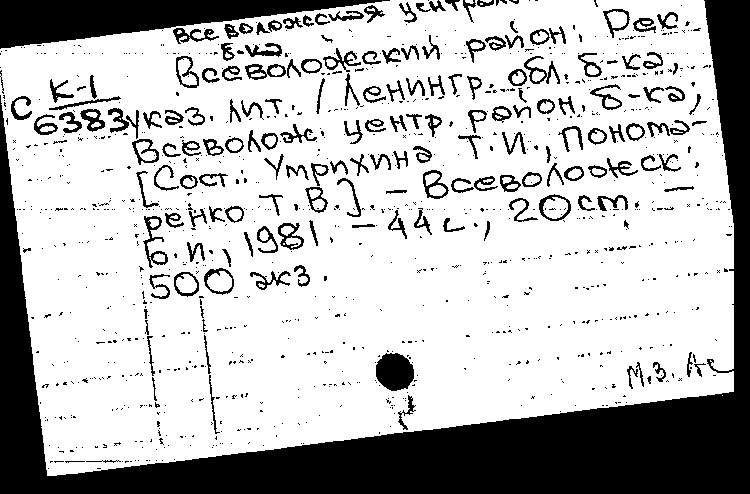 Всеволожская центральн
б-ка.
Всеволожский район: Рек.
С К-1
6383
указ. лит. / Ленингр. обл. б-ка,
Всеволож. центр. район. б-ка;
[Сост.: Утрихина Т.И., Понома-
ренко Т.В.]. – Всеволожск:
Б.и., 1981. – 44 с., 20 cm. –
500 экз.
М.З.